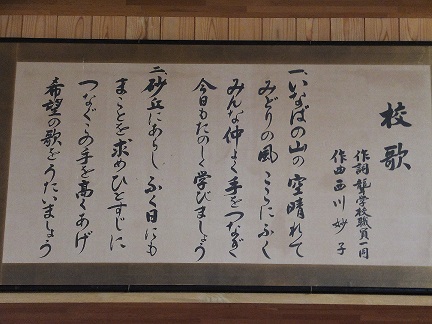 校歌
作詞 聾学校職員一同
作曲 西川妙子
一、いなばの山の空晴れて
みどりの風こゝにふく
みんな仲よく手をつなぎ
今日もたのしく学びましょう
二、砂丘にあらしふく日にも
まことを求めひとすじに
つなぐこの手を高くあげ
希望の歌をうたいましょう